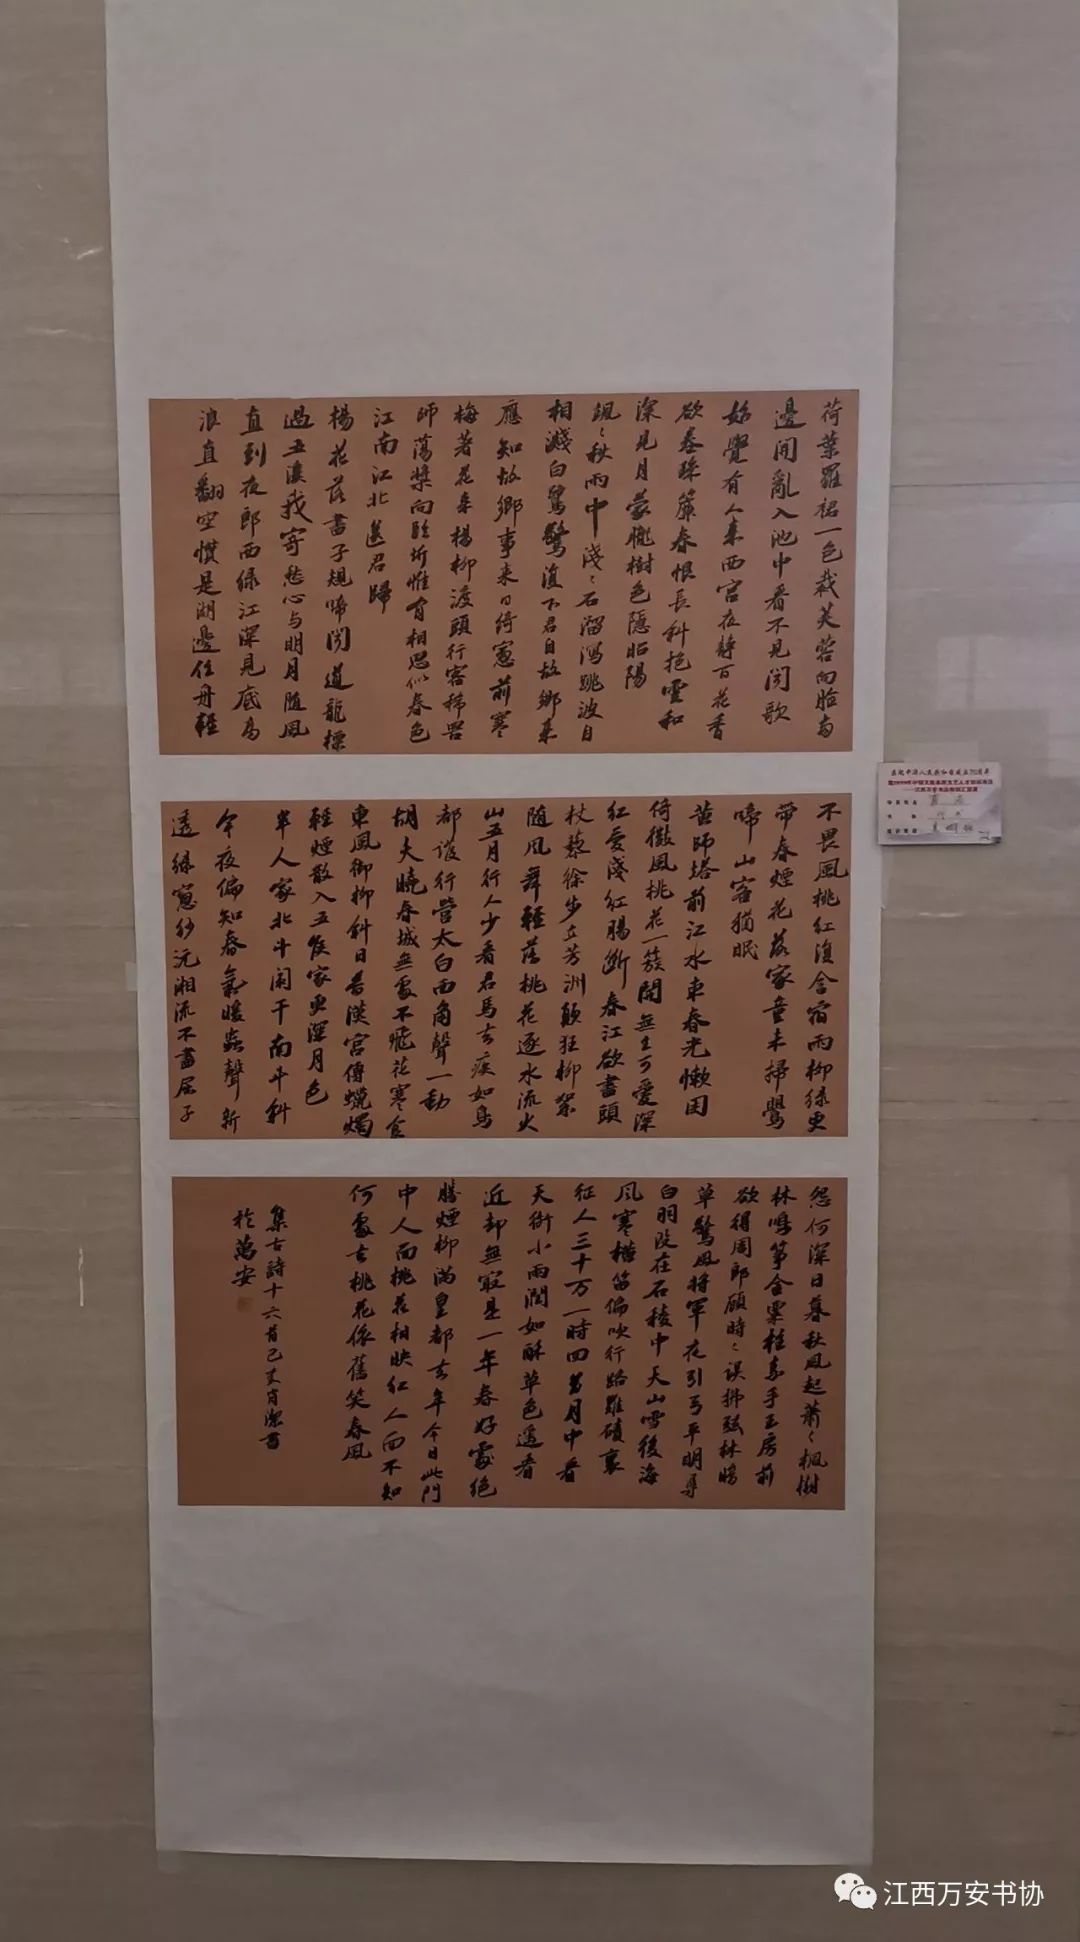 荷葉羅裙一色裁芙蓉向臉兩
邊開亂入池中看不見聞歌
始覺有人來西宮夜靜百花香
欲卷珠簾春恨長斜抱雲和
深見月蒙朧樹色隱昭陽
颯〻秋雨中淺〻石溜瀉跳波自
相濺白鷺驚復下君自故鄉來
應知故鄉事來日綺窓前寒
梅著花未楊柳渡頭行客稀罟
師蕩槳向臨圻惟有相思似春色
江南江北送君歸
楊花落盡子規啼聞道龍標
過五溪我寄愁心与明月隨風
直到夜郎西綠江深見底高
浪直翻空慣是湖邊住舟輕
不畏風桃紅復含宿雨柳綠更
帶春煙花落家童未掃鶯
啼山客猶眠
黃師塔前江水東春光懶困
倚微風桃花一簇開無主可愛深
紅愛淺紅腸斷春江欲盡頭
杖藜徐步立芳洲顛狂柳絮
隨風舞輕薄桃花逐水流火
山五月行人少看君馬去疾如鳥
都護行營太白西角聲一動
胡天曉春城無處不飛花寒食
東風御柳斜日暮漢宮傳蠟燭
輕煙散入五侯家更深月色
半人家北斗闌干南斗斜
今夜偏知春氣暖蟲聲新
透綠窓紗沅湘流不盡屈子
怨何深日暮秋風起蕭〻楓樹
林鳴箏金粟柱素手玉房前
欲得周郎顧時〻誤拂弦林暗
草驚風將軍夜引弓平明尋
白羽沒在石稜中天山雪後海
風寒橫笛偏吹行路難磧裏
征人三十万一時回首月中看
天街小雨潤如酥草色遙看
近却無最是一年春好處絕
勝煙柳滿皇都去年今日此門
中人面桃花相映紅人面不知
何處去桃花依舊笑春風
集古詩十六首己亥肖潔書
於萬安
江西万安书协